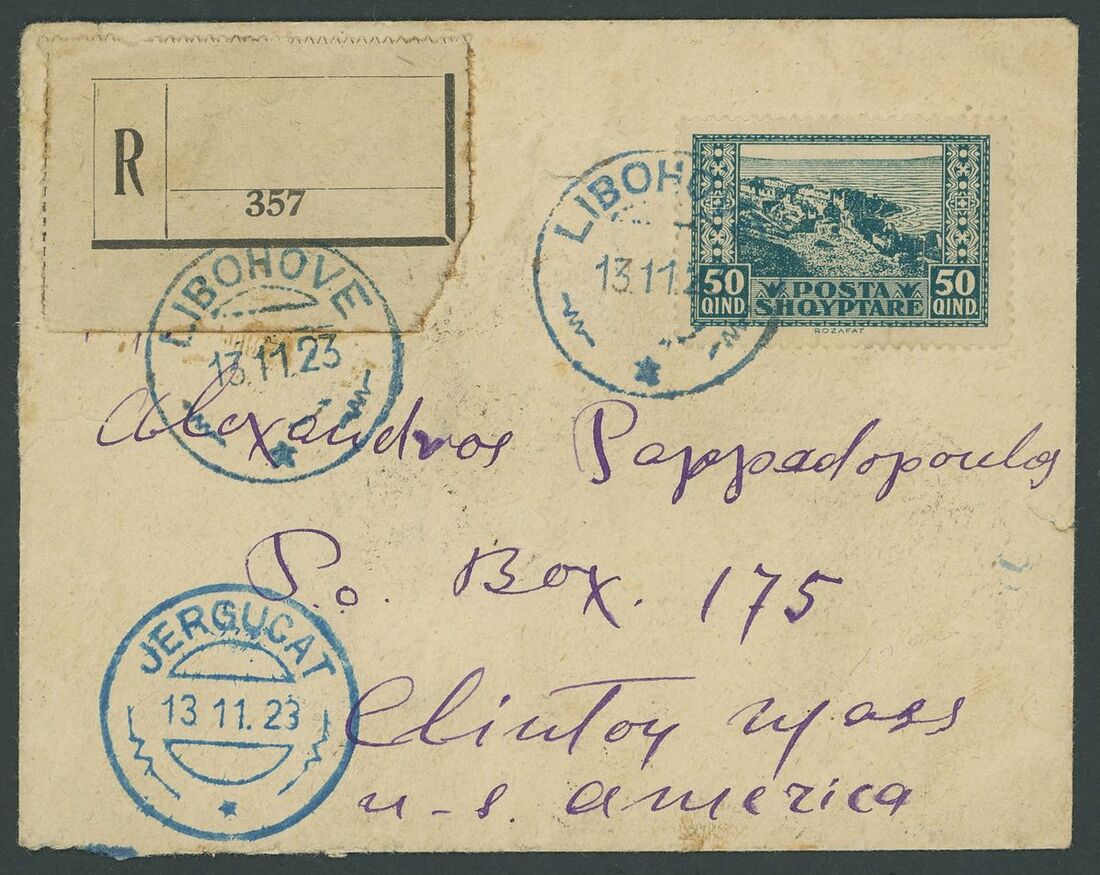 R
357
LIBOHOVE
13.11.23
LIBOHO
13.11.2
50 QIND. POSTA SHQYPTARE 50 QIND.
ROZAFAT
Alexandros Pappadopoulos
P.o. Box. 175
Clinton Mass
u-s. america
JERGUCAT
13 11. 23